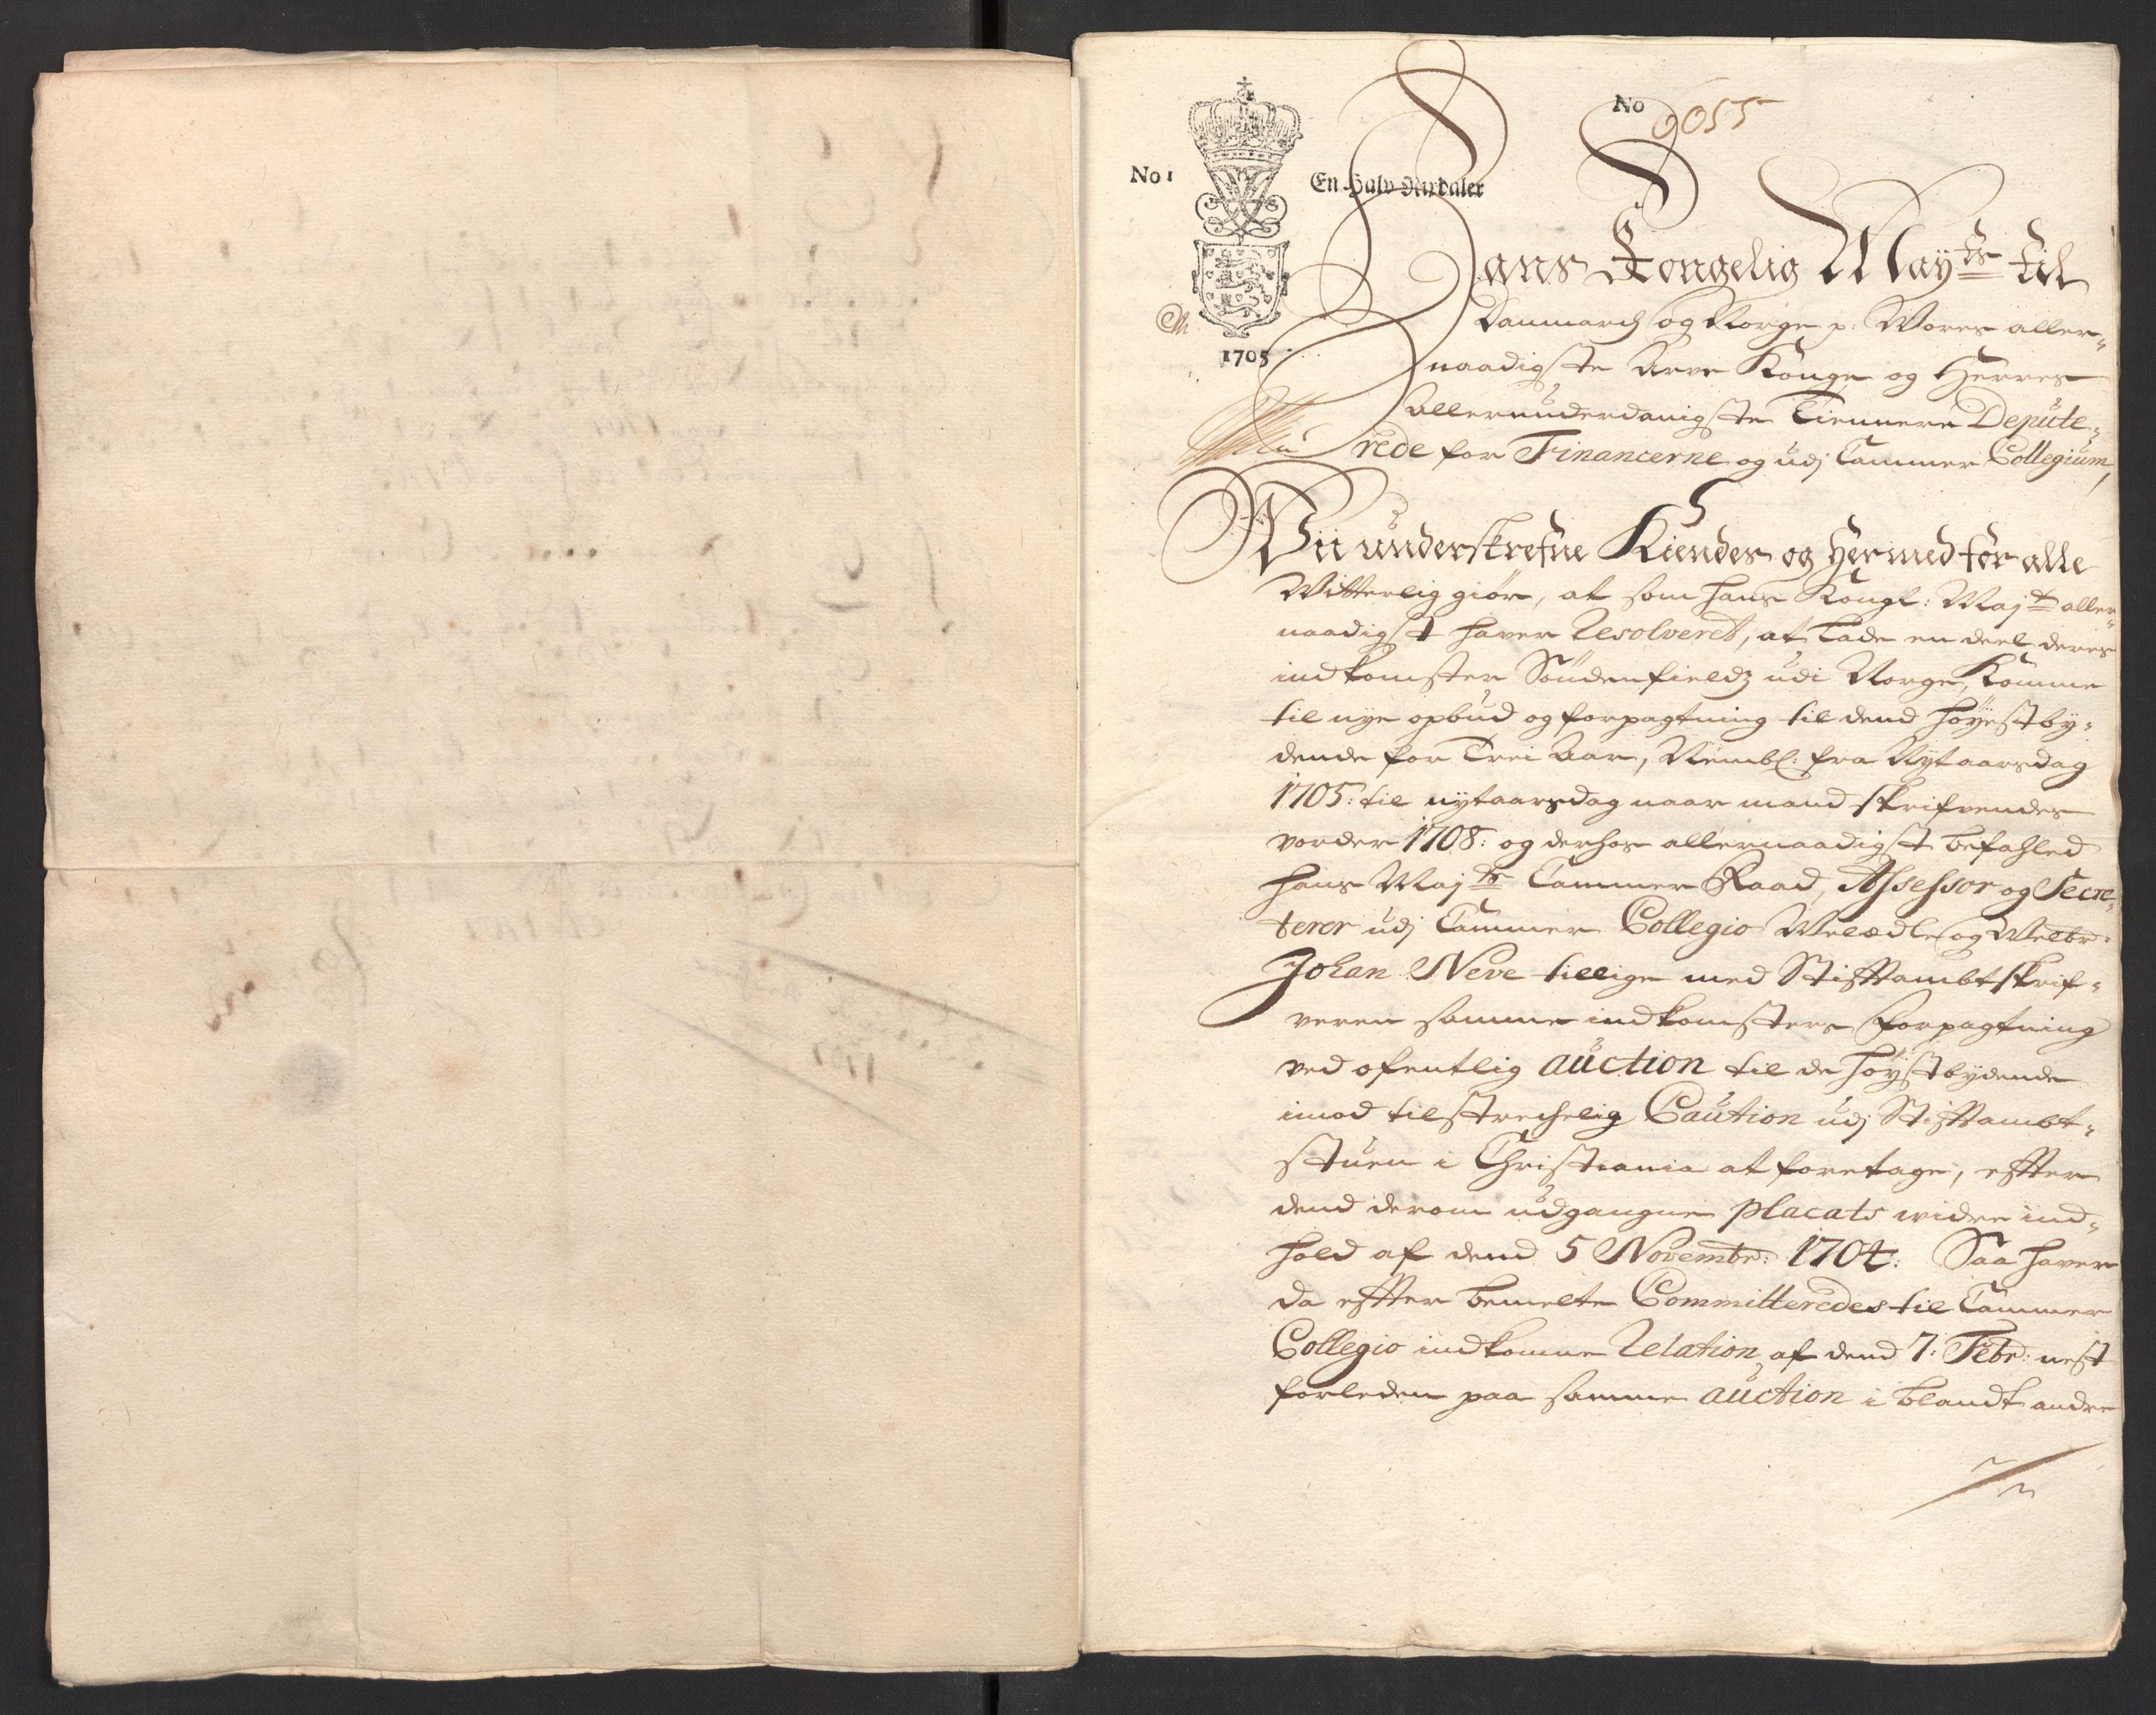 No 9055
No 1
En Halv Rixdaler
1705
Hans Kongelig May.ts til
Danmarch og Norge p: Vores aller-
naadigste Arve Konge og Herres
Allerunderdanigste Tiennere Depute-
rede for Financerne og udj Cammer Collegium,
Wii underskrefne Kiendes og Hermed for alle
Witterlig giør, at som hans Kongl: Maj.t aller-
naadigst haver Resolveret, at lade en deel deres
indkomster Søndenfieldz udi Norge, Komme
til nye opbud og forpagtning til dend høyestby-
dende for Trei Aar, Nembl: fra Nytaarsdag
1705: til nytaarsdag naar mand skrifvendes
vorder 1708: og derhos allernaadigst befahled
hans Maj.ts Cammer Raad, Assessor og Secre-
terer udj Cammer Collegio Welædle og Welbr:
Johan Neve tillige med Stifftambtskrif-
veren samme indkomsters forpagtning
ved ofentlig auction til de høystbydende
imod tilstrechelig Caution udj Stifftambt-
stuen i Christiania at foretage, effter
dend derom udgangne placats widre ind-
hold af dend 5 Novembr: 1704: Saa haver
da effter bemelte Committeredes til Cammer
Collegio indkomne Relation af dend 7: Febr: nest
forleden paa samme auction i blandt andre